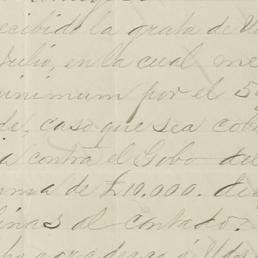 ecibido la grata de V
Julio, en la cual me
inimum por el 5
de, caso que sea cob
a contra el Gobo de
rma de £10.000. di
inas al contado.